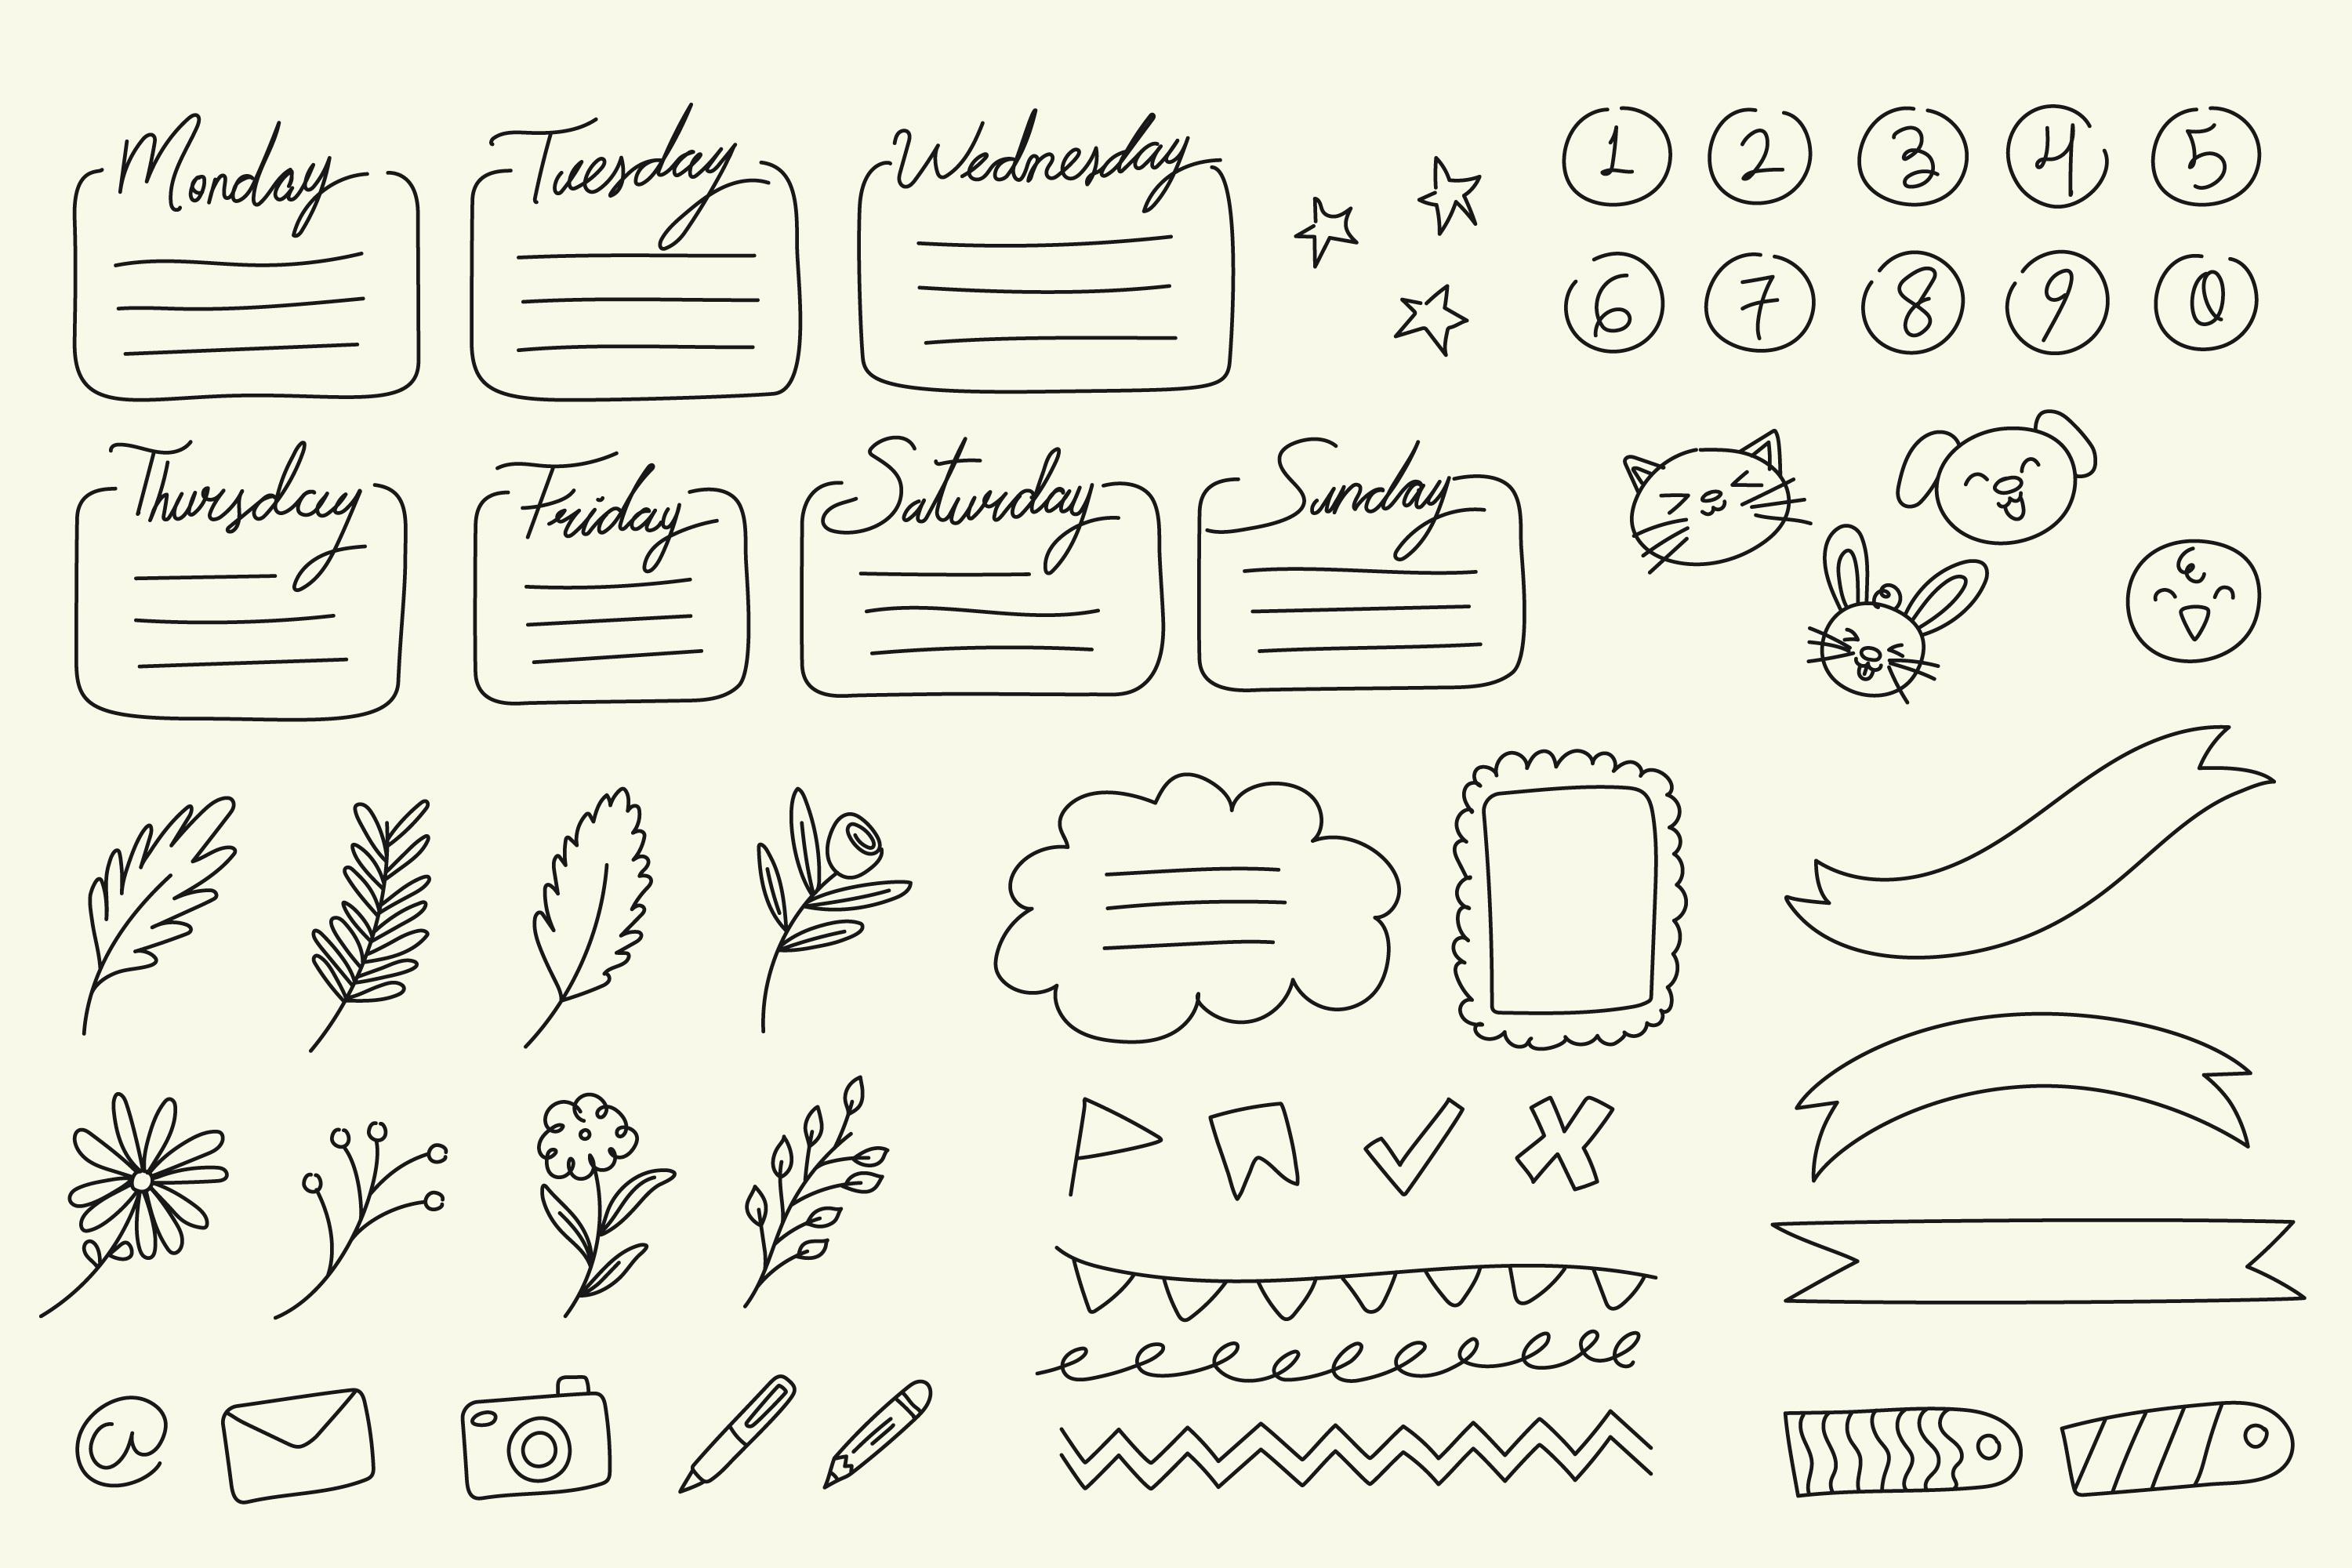 Monday Tuesday Wednesday
1 2 3 4 5
6 7 8 9 0
Thursday Friday Saturday Sunday
@